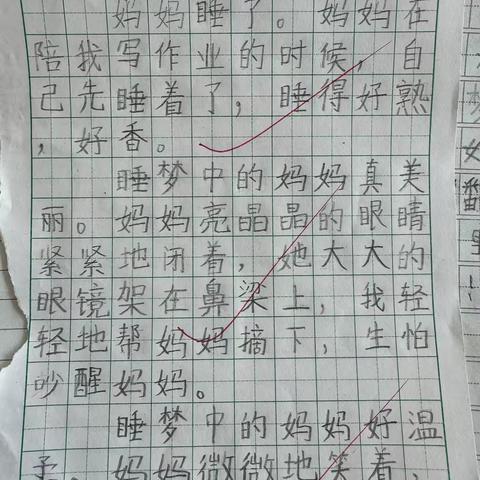 妈妈睡了。妈妈在
陪我写作业的时候，自
己先睡着了，睡得好熟
，好香。
睡梦中的妈妈真美
丽。妈妈亮晶晶的眼睛
紧紧地闭着，她大大的
眼镜架在鼻梁上，我轻
轻地帮妈妈摘下，生怕
吵醒妈妈。
睡梦中的妈妈好温
柔，妈妈微微地笑着，